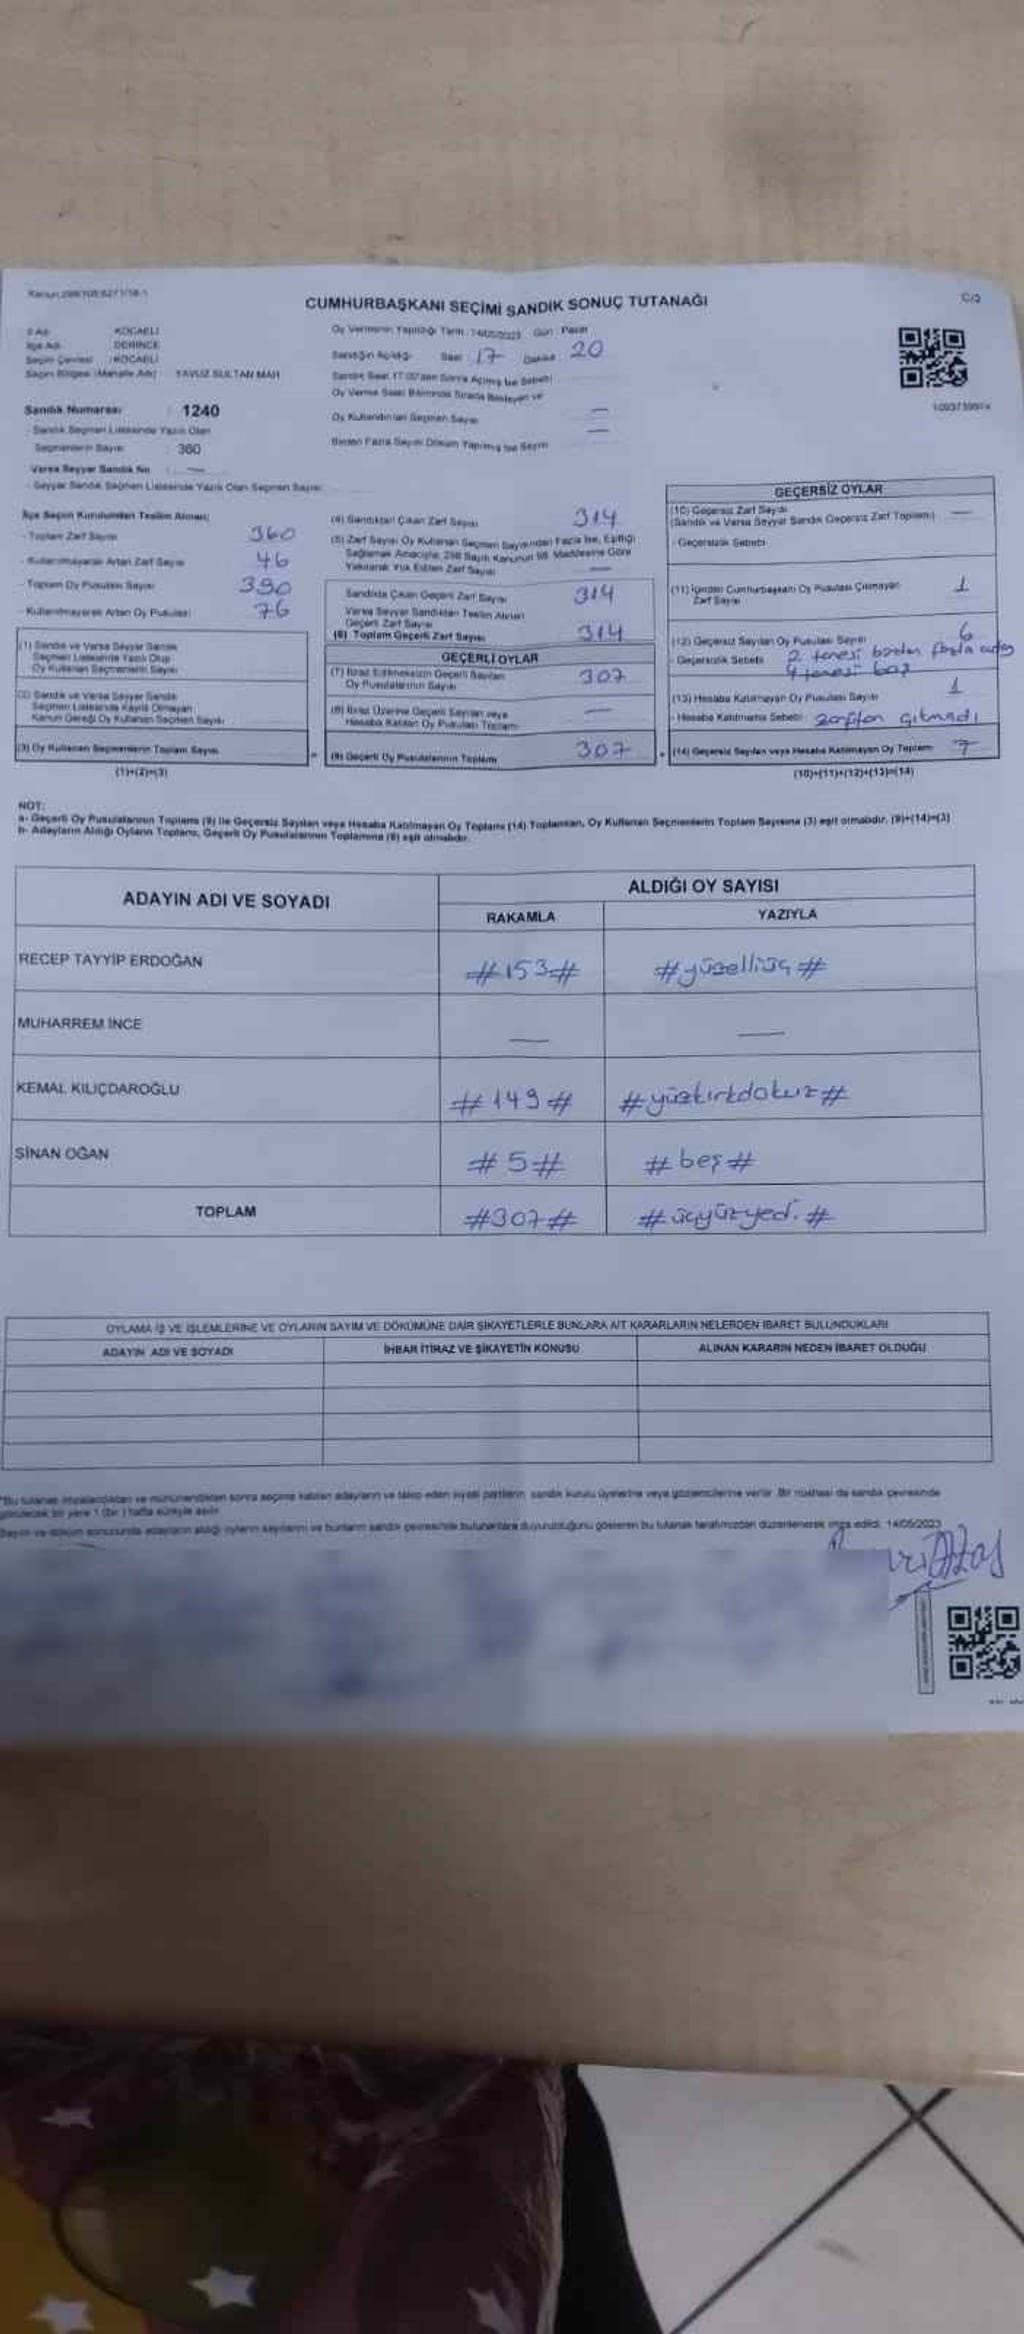 C/2
CUMHURBAŞKANI SEÇİMİ SANDIK SONUÇ TUTANAĞI
İl Adı : KOCAELİ
İlçe Adı : DERİNCE
Seçim Çevresi : KOCAELİ
Seçim Bölgesi (Mahalle Adı) : YAVUZ SULTAN MAH
Sandık Numarası : 1240
- Sandık Seçmen Listesinde Yazılı Olan
Seçmenlerin Sayısı : 360
Varsa Seyyar Sandık No : —
- Seyyar Sandık Seçmen Listesinde Yazılı Olan Seçmen Sayısı:
Oy Vermenin Yapıldığı Tarih: 14/05/2023 Gün: Pazar
Sandığın Açıldığı Saat 17 Dakika 20
Sandık Saat 17.00'den Sonra Açılmış İse Sebebi
Oy Verme Saati Bitiminde Sırada Bekleyen ve
Oy Kullandırılan Seçmen Sayısı —
Birden Fazla Sayım Döküm Yapılmış İse Sayısı —
İlçe Seçim Kurulundan Teslim Alınan;
- Toplam Zarf Sayısı 360
- Kullanılmayarak Artan Zarf Sayısı 46
- Toplam Oy Pusulası Sayısı 390
- Kullanılmayarak Artan Oy Pusulası 76
(1) Sandık ve Varsa Seyyar Sandık
Seçmen Listesinde Yazılı Olup
Oy Kullanan Seçmenlerin Sayısı
(2) Sandık ve Varsa Seyyar Sandık
Seçmen Listesinde Kayıtlı Olmayan
Kanun Gereği Oy Kullanan Seçmen Sayısı
(3) Oy Kullanan Seçmenlerin Toplam Sayısı
(1)+(2)=(3)
(4) Sandıktan Çıkan Zarf Sayısı 314
(5) Zarf Sayısı Oy Kullanan Seçmen Sayısından Fazla İse, Eşitliği
Sağlamak Amacıyla, 298 Sayılı Kanunun 98. Maddesine Göre
Yakılarak Yok Edilen Zarf Sayısı —
Sandıkta Çıkan Geçerli Zarf Sayısı 314
Varsa Seyyar Sandıktan Teslim Alınan
Geçerli Zarf Sayısı
(6) Toplam Geçerli Zarf Sayısı 314
GEÇERLİ OYLAR
(7) İtiraz Edilmeksizin Geçerli Sayılan
Oy Pusulalarının Sayısı 307
(8) İtiraz Üzerine Geçerli Sayılan veya
Hesaba Katılan Oy Pusulaları Toplamı —
(9) Geçerli Oy Pusulalarının Toplamı 307
GEÇERSİZ OYLAR
(10) Geçersiz Zarf Sayısı —
(Sandık ve Varsa Seyyar Sandık Geçersiz Zarf Toplamı)
- Geçersizlik Sebebi
(11) İçinden Cumhurbaşkanı Oy Pusulası Çıkmayan 1
Zarf Sayısı
(12) Geçersiz Sayılan Oy Pusulası Sayısı 6
- Geçersizlik Sebebi 2 tenesi birden fazla aday
4 tenesi boş
(13) Hesaba Katılmayan Oy Pusulası Sayısı 1
- Hesaba Katılmama Sebebi zarftan çıkmadı
(14) Geçersiz Sayılan veya Hesaba Katılmayan Oy Toplamı 7
(10)+(11)+(12)+(13)=(14)
NOT:
a- Geçerli Oy Pusulalarının Toplamı (9) ile Geçersiz Sayılan veya Hesaba Katılmayan Oy Toplamı (14) Toplamları, Oy Kullanan Seçmenlerin Toplam Sayısına (3) eşit olmalıdır. (9)+(14)=(3)
b- Adayların Aldığı Oyların Toplamı, Geçerli Oy Pusulalarının Toplamına (9) eşit olmalıdır.
ADAYIN ADI VE SOYADI
ALDIĞI OY SAYISI
RAKAMLA YAZIYLA
RECEP TAYYİP ERDOĞAN #153# #yüzelliüç#
MUHARREM İNCE — —
KEMAL KILIÇDAROĞLU #149# #yüzkırkdokuz#
SİNAN OĞAN #5# #beş#
TOPLAM #307# #üçyüzyedi#
OYLAMA İŞ VE İŞLEMLERİNE VE OYLARIN SAYIM VE DÖKÜMÜNE DAİR ŞİKAYETLERLE BUNLARA AİT KARARLARIN NELERDEN İBARET BULUNDUKLARI
ADAYIN ADI VE SOYADI İHBAR İTİRAZ VE ŞİKAYETİN KONUSU ALINAN KARARIN NEDEN İBARET OLDUĞU
*Bu tutanak imzalandıktan ve mühürlendikten sonra seçime katılan adayların ve talep eden siyasi partilerin sandık kurulu üyelerine veya gözlemcilerine verilir. Bir nüshası da sandık çevresinde
görülecek bir yere 1 (bir) hafta süreyle asılır.
Sayım ve döküm sonucunda adayların aldığı oyların sayılarını ve bunların sandık çevresinde bulunanlara duyurulduğunu gösteren bu tutanak tarafımızdan düzenlenerek imza edildi. 14/05/2023